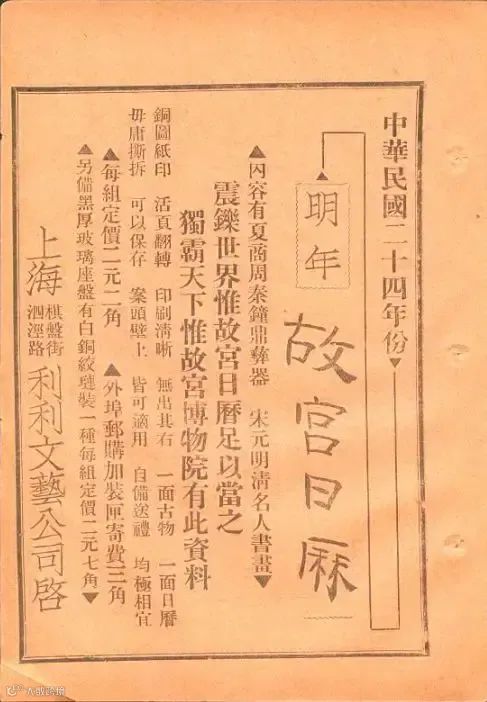 中華民國二十四年份▼
▲明年
故宮日厤
▲內容有夏商周秦鐘鼎彝器　宋元明清名人書畫▼
震鑠世界惟故宮日曆足以當之
獨霸天下惟故宮博物院有此資料
銅圖紙印　活頁翻轉　印刷清晰　無出其右　一面古物　一面日曆
毋庸撕拆　可以保存　案頭壁上　皆可適用　自備送禮　均極相宜
▲每組定價二元二角　▲外埠郵購加裝匣寄費三角
▲另備黑厚玻璃座盤有白銅絞璉裝一種每組定價二元七角▼
上海　棋盤街　泗涇路　利利文藝公司啓